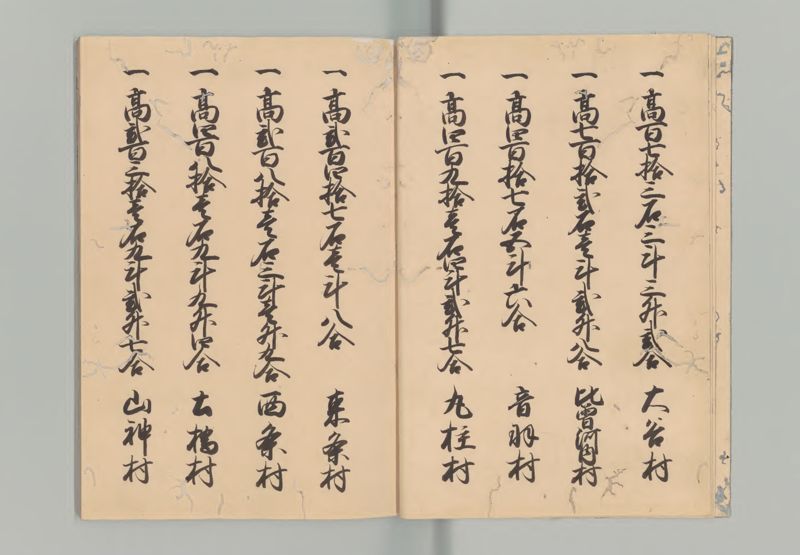 一高百七拾三石三斗三升弐合 大谷村
一高七百拾弐石壱斗弐升八合 比曽河内村
一高四百拾七石五斗六合 音羽村
一高四百九拾壱石四斗弐升七合 丸柱村
一高弐百四拾七石壱斗八合 東条村
一高弐百八拾壱石三斗壱升九合 西条村
一高四百八拾壱石九斗九升四合 土橋村
一高弐百三拾壱石九斗弐升七合 山神村